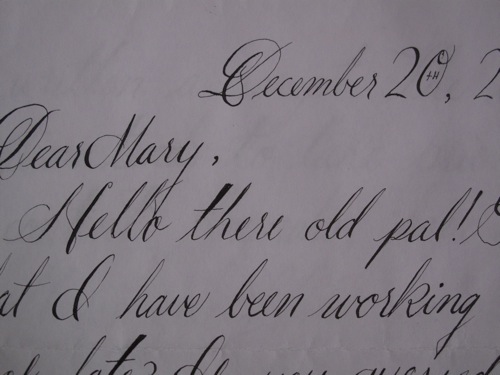 December 20th, 2
Dear Mary,
Hello there old pal!
at I have been working
late